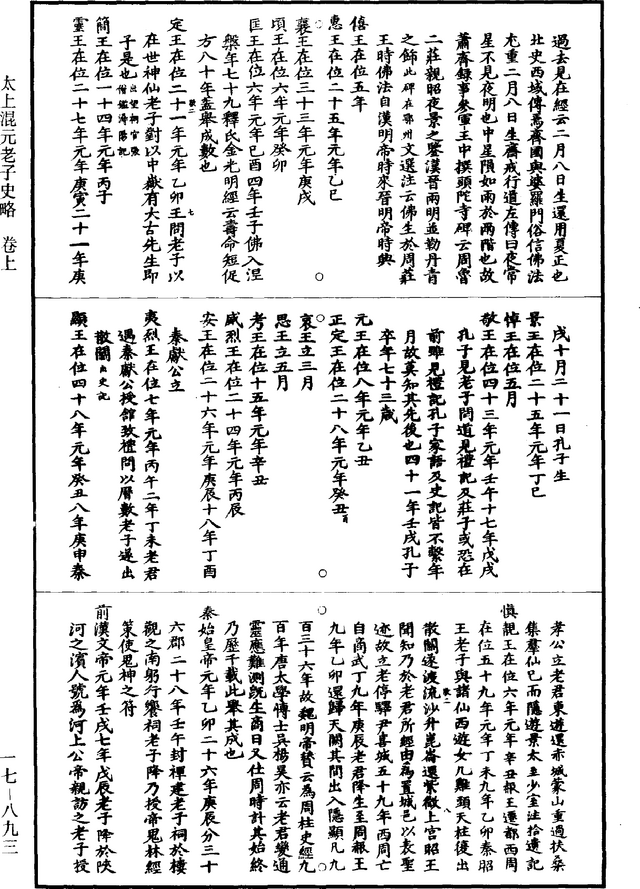 過去見在經云二月八日生還用夏正也
北史西域傳焉耆國與婆羅門俗信佛法
尤重二月八日生齋戒行道左傳曰夜常
星不見夜明也中星隕如雨於兩階也故
蕭齊錄事參軍王中撰頭陀寺碑云周魯
二莊親昭夜景之鑒漢晉兩明並勒丹青
之飾此碑在鄂州文選注云佛生於周莊
王時佛法自漢明帝時來晉明帝時興
僖王在位五年
惠王在位二十五年元年乙巳
襄王在位三十三年元年庚戌
頃王在位六年元年癸卯
匡王在位六年元年己酉四年壬子佛入涅
槃年七十九釋氏金光明經云壽命短促
方八十年蓋舉成數也
定王在位二十一年元年乙卯王問老子以
在世神仙老子對以中嶽有大古先生即
子是也
簡王在位一十四年元年丙子
靈王在位二十七年元年庚寅二十一年庚
太上混元老子史略 卷上
戌十月二十一日孔子生
景王在位二十五年元年丁巳
悼王在位五月
敬王在位四十三年元年壬午十七年戊戌
孔子見老子問道見禮記及莊子或恐在
前雖見禮記孔子家語及史記皆不繫年
月故莫知其先後也四十一年壬戌孔子
卒年七十三歲
元王在位八年元年乙丑
正定王在位二十八年元年癸丑
哀王立三月
思王立五月
考王在位十五年元年辛丑
威烈王在位二十四年元年丙辰
安王在位二十六年元年庚辰十八年丁酉
秦獻公立
夷烈王在位七年元年丙午二年丁未老君
過秦獻公授館致禮問以曆數老子遂出
散關出史記
顯王在位四十八年元年癸丑八年庚申秦
孝公立老君東遊還赤城蒙山重過扶桑
集羣仙已而隱遊景太至少室注拾遺記
慎靚王在位六年元年辛丑赧王遷都西周
在位五十九年元年丁未九年乙卯秦昭
王老子與諸仙西遊女几雞頭天柱復出
散關遂渡流沙升崑崙還紫微上宮昭王
聞知乃於老君所經由為置城邑以表聖
迹故立老停驛尹喜城五十九年丙周亡
自商武丁九年庚辰老君降生至周赧王
九年乙卯還歸天闕其間出入隱顯凡九
百三十六年故魏明帝贊云為周柱史經九
百年唐太學博士吳楊昊亦云老君變通
靈應難測既生商日又仕周時計其始終
乃歷千載此舉其成也
秦始皇帝元年乙卯二十六年庚辰分三十
六郡二十八年壬午封禪建老子祠於樓
觀之南躬行饗祠老子降乃授帝鬼林經
策使鬼神之符
前漢文帝元年壬戌七年戊辰老子降於陝
河之濱人號為河上公帝親訪之老子授
一七-八九三